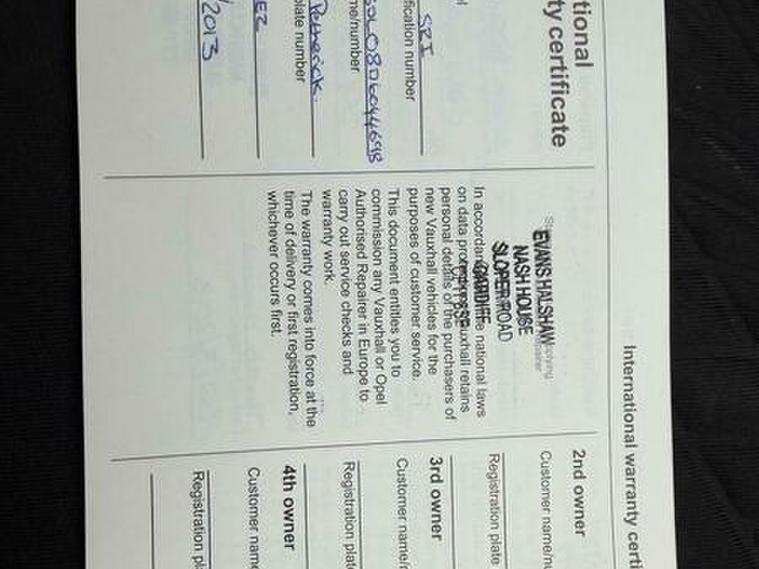 International warranty certi
tional
ty certificate
l
SRI
fication number
GOL080B044698
me/number
Petherick
plate number
EZ
/2013
EVANS HALSHAW
NASH HOUSE
SLOPER ROAD
CARDIFF
In accordan e national laws
on data pro uxhall retains
personal details of the purchasers of
new Vauxhall vehicles for the
purposes of customer service.
This document entitles you to
commission any Vauxhall or Opel
Authorised Repairer in Europe to
carry out service checks and
warranty work.
The warranty comes into force at the
time of delivery or first registration,
whichever occurs first.
2nd owner
Customer name/nu
Registration plate
3rd owner
Customer name/r
Registration plate
4th owner
Customer name
Registration pl